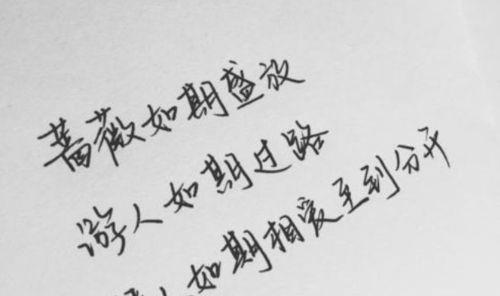 蔷薇如期盛放
游人如期过路
人如期相爱至到分开